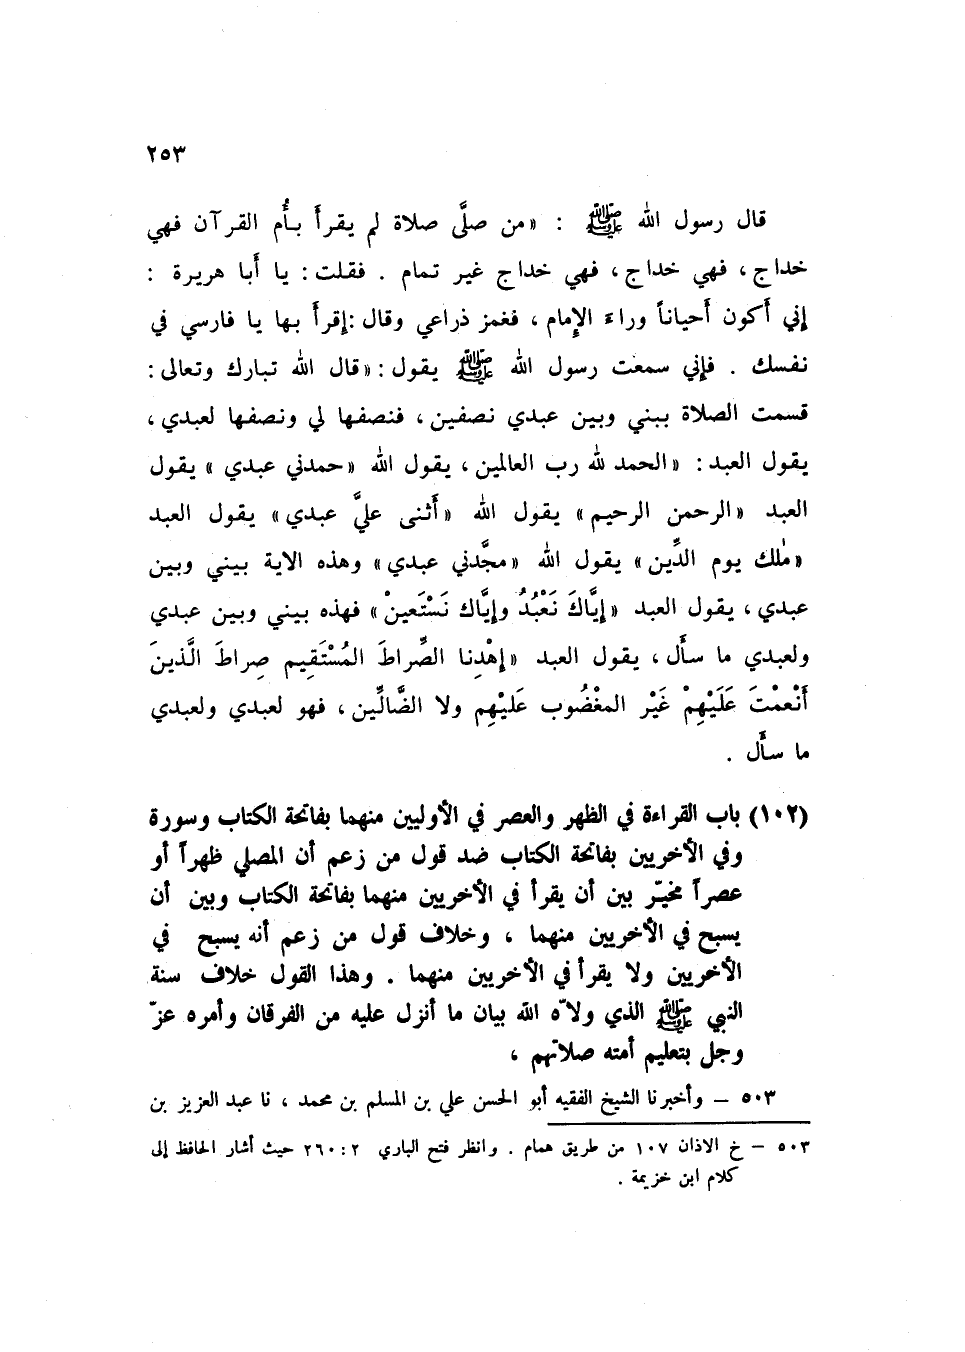 ٢٥٣
قال رسول الله ﷺ : «من صلَّى صلاة لم يقرأ بأُم القرآن فهي
خداج، فهي خداج، فهي خداج غير تمام . فقلت: يا أَبا هريرة :
إني أَكون أَحياناً وراء الإِمام، فغمز ذراعي وقال :إقرأ بها يا فارسي في
نفسك . فإني سمعت رسول الله ﷺ يقول: «قال الله تبارك وتعالى:
قسمت الصلاة بيني وبين عبدي نصفين، فنصفها لي ونصفها لعبدي،
يقول العبد: «الحمد لله رب العالمين، يقول الله «حمدني عبدي» يقول
العبد «الرحمن الرحيم» يقول الله «أَثنى عليَّ عبدي» يقول العبد
«مٰلك يوم الدِّين» يقول الله «مجَّدني عبدي» وهذه الاية بيني وبين
عبدي، يقول العبد «إِيَّاكَ نَعْبُدُ وإِيَّاك نَسْتَعينْ» فهذه بيني وبين عبدي
ولعبدي ما سأَل، يقول العبد «إهْدِنا الصِّراطَ المُسْتَقِيم صِراطَ الَّذينَ
أَنْعمْتَ عَلَيْهِمْ غَيْر المغْضُوب عَليْهِم ولا الضَّالِّين، فهو لعبدي ولعبدي
ما سأَل .
(١٠٢) باب القراءة في الظهر والعصر في الأوليين منهما بفاتحة الكتاب وسورة
وفي الأخريين بفاتحة الكتاب ضد قول من زعم أن المصلي ظهراً أو
عصراً مخيّر بين أن يقرأ في الأخريين منهما بفاتحة الكتاب وبين أن
يسبح في الأخريين منهما ، وخلاف قول من زعم أنه يسبح في
الأخريين ولا يقرأ في الأخريين منهما . وهذا القول خلاف سنة
النبي ﷺ الذي ولاّه الله بيان ما أنزل عليه من الفرقان وأمره عزّ
وجل بتعليم أمته صلاتهم ،
٥٠٣ – وأخبرنا الشيخ الفقيه أبو الحسن علي بن المسلم بن محمد ، نا عبد العزيز بن
٥٠٣ – خ الاذان ١٠٧ من طريق همام . وانظر فتح الباري ٢٦٠:٢ حيث أشار الحافظ إلى
كلام ابن خزيمة .